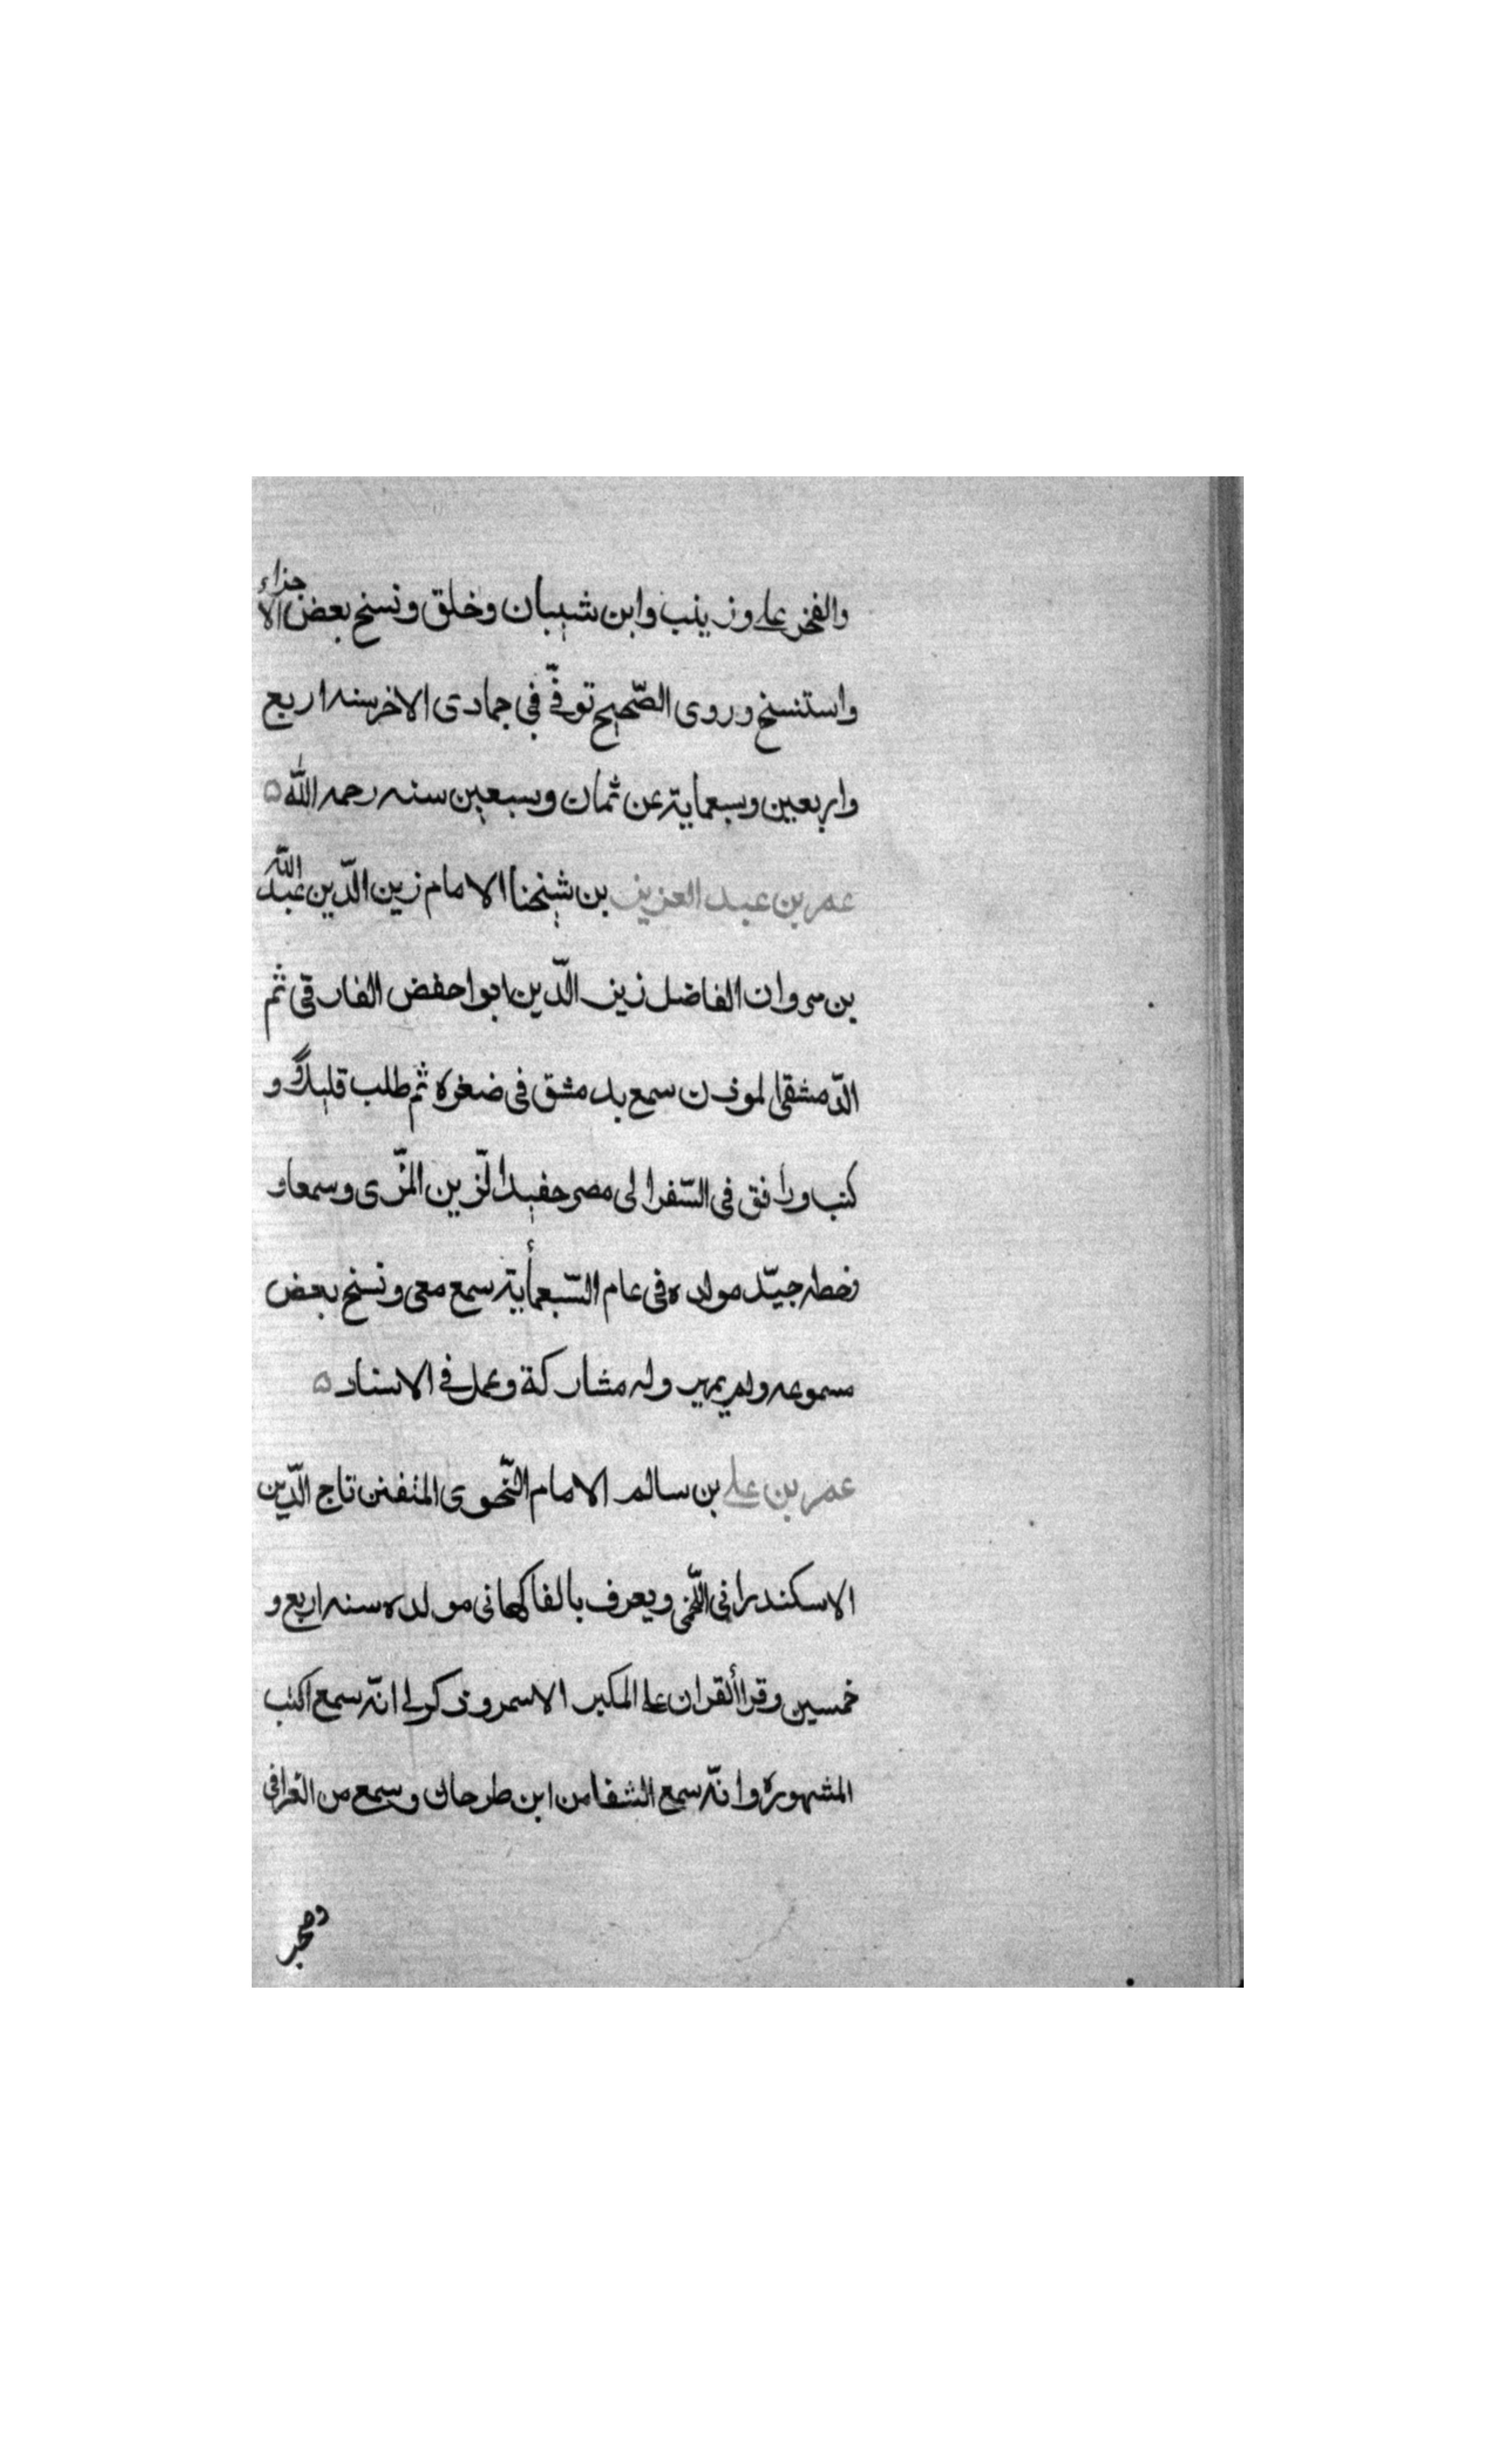 والفخر على وزينب وابن شيبان وخلق ونسخ بعض الاجزاء
واستنسخ وروى الصّحيح توفّى في جمادى الاخر سنه اربع
واربعين وسبعماية عن ثمان وسبعين سنه رحمه اللّه ۵
عمر بن عبد العزيز بن شيخنا الامام زين الدّين عبد اللّه
بن مروان الفاضل زين الدّين ابوا حفض الفارقى ثم
الدّمشقى لموذن سمع بدمشق فى ضغره ثم طلب قليلاً و
كتب ورافق فى السّفر الى مصر حفيد الزّين المزّى وسمعا و
خطه جيّد مولده فى عام السّبعمأية سمع معى ونسخ بعض
مسموعه ولم يمهر وله مشاركة وعمل فى الاسناد ۵
عمر بن على بن سالم الامام النّحوى المتفنن تاج الدّين
الاسكندرانى اللّخمى ويعرف بالفاكهانى مولده سنه اربع و
خمسين وقرا ألقران على المكير الاسمر وذكر لى انّه سمع اكتب
المشهوره وانّه سمع الشفا من ابن طرحان وسمع من الغرافى